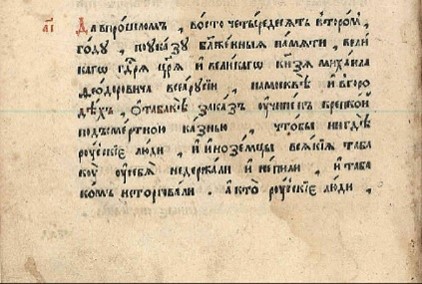 аı Да впрошломъ , восто четыредесятъ второмъ ,
году , поуказу блаженныя памяти , вели
кагѡ гдⷭ҇ря цр҃я и великагѡ кн҃зя михаила
ѳеодоровича всеарусіи , намосквѣ и вгоро
дѣхъ , ѡтабакѣ заказъ оучиненъ крепкои
подсмертною казнью , чтобы нигдѣ
роусскіе люди , и иноземцы всякія таба
коу оусебя недержали и непили , и таба
комъ неторговали . акто роусскіе люди ,